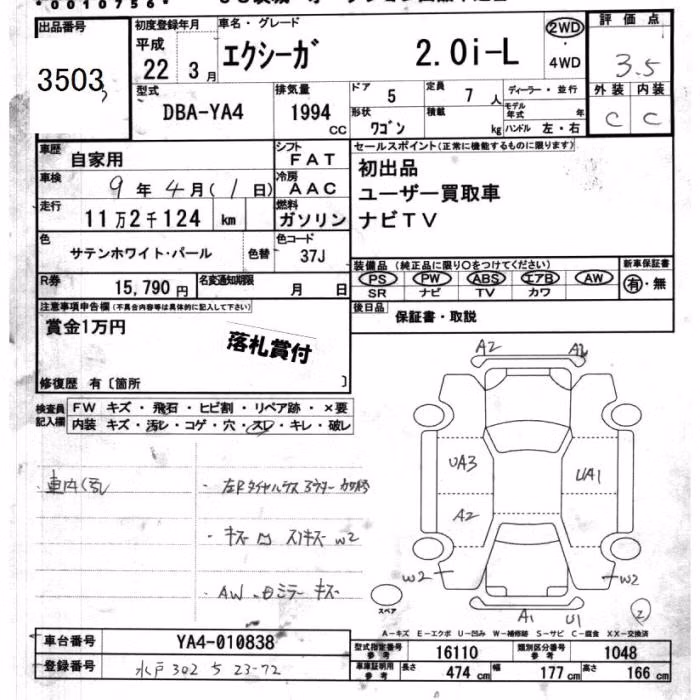 *0010756*
出品番号
3503
初度登録年月
平成
22年 3月
車名・グレード
エクシーガ 2.0i-L
2WD
・
4WD
評価点
3.5
外装 内装
C C
型式
DBA-YA4
排気量
1994
CC
ドア
5
定員
7人
形状
ワゴン
積載
kg
ディーラー・並行
モデル年式 年
ハンドル 左・右
車歴
自家用
シフト
FAT
車検
9年4月(1日)
冷房
AAC
走行
11万2千124 km
燃料
ガソリン
色
サテンホワイト・パール
色替
色コード
37J
R券
15,790円
名変通知期限
月 日
セールスポイント(正常に機能するものに限ります)
初出品
ユーザー買取車
ナビTV
装備品 (純正品に限り○をつけてください)
PS PW ABS エアB AW
SR ナビ TV カワ
新車保証書
有・無
後日品
保証書・取説
注意事項申告欄(不具合内容等は具体的に記入して下さい)
賞金1万円
落札賞付
修復歴 有〔箇所 〕
検査員
記入欄
FW キズ・飛石・ヒビ割・リペア跡・×要
内装 キズ・汚レ・コゲ・穴・スレ・キレ・破レ
・キズ 凹 スリキズ W2
AW、ミラー キズ
A2 A2
UA3 UA1
A2
W2 W2
A1 U1
スペア
2
A-キズ E-エクボ U-凹み W-補修跡 S-サビ C-腐食 XX-交換済
車台番号
YA4-010838
登録番号
水戸 302 5 23-72
型式指定番号
参考
16110
類別区分番号
参考
1048
車庫証明用
参考
長さ
474 cm
幅
177 cm
高さ
166 cm